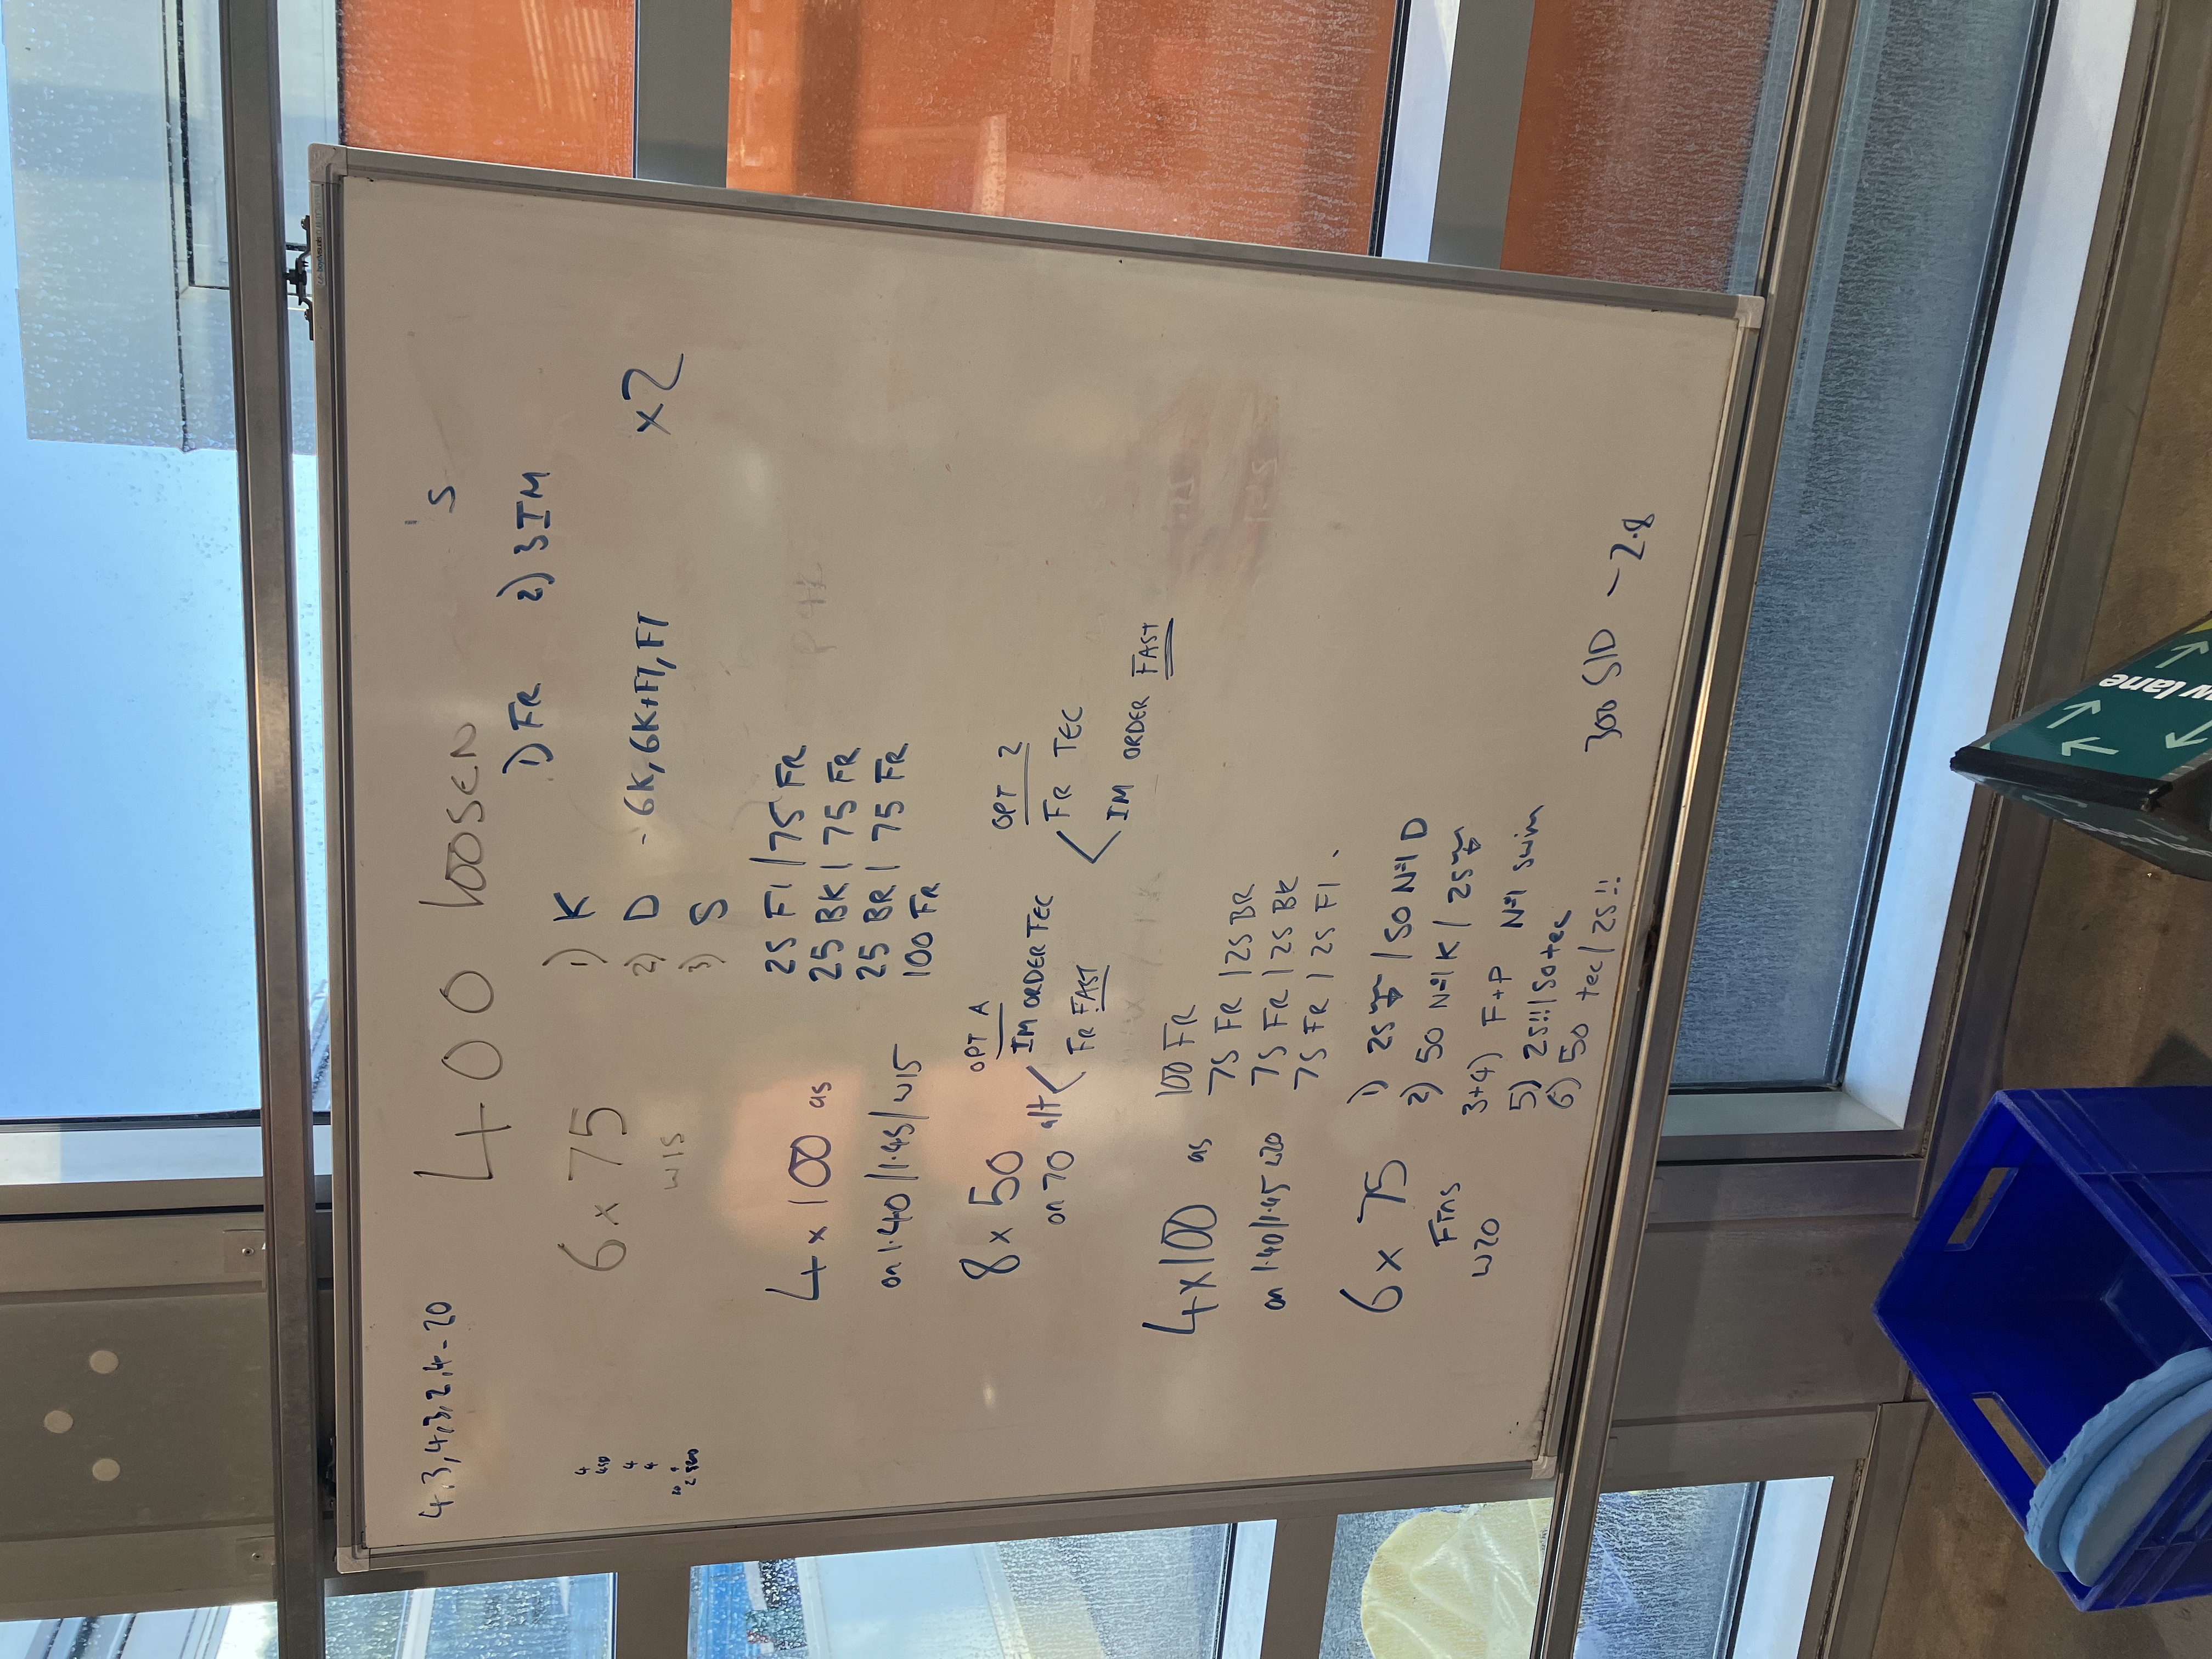 4.3,4,3,2.4-20
400 LOOSEN 's
6 x 75 1) K 1) FR 2) 3IM
w15 2) D - 6K, 6K+Fl, Fl x2
3) S
4 x 100 as 25 Fl / 75 FR
25 BK / 75 FR
on 1.40/1.45/w15 25 BR / 75 FR
100 FR
OPT A OPT 2
8 x 50 IM ORDER TEC FR TEC
on 70 alt FR FAST IM ORDER FAST
4x100 as 100 FR
75 FR / 25 BR
on 1.40/1.45 w20 75 FR / 25 BK
75 FR / 25 Fl.
6 x 75 1) 25 / 50 Nº1 D
2) 50 Nº1 K / 25
Fins 3+4) F+P Nº1 swim
w20 5) 25!!/50tec
6) 50 tec / 25!!
300 S/D - 2.8
w lane